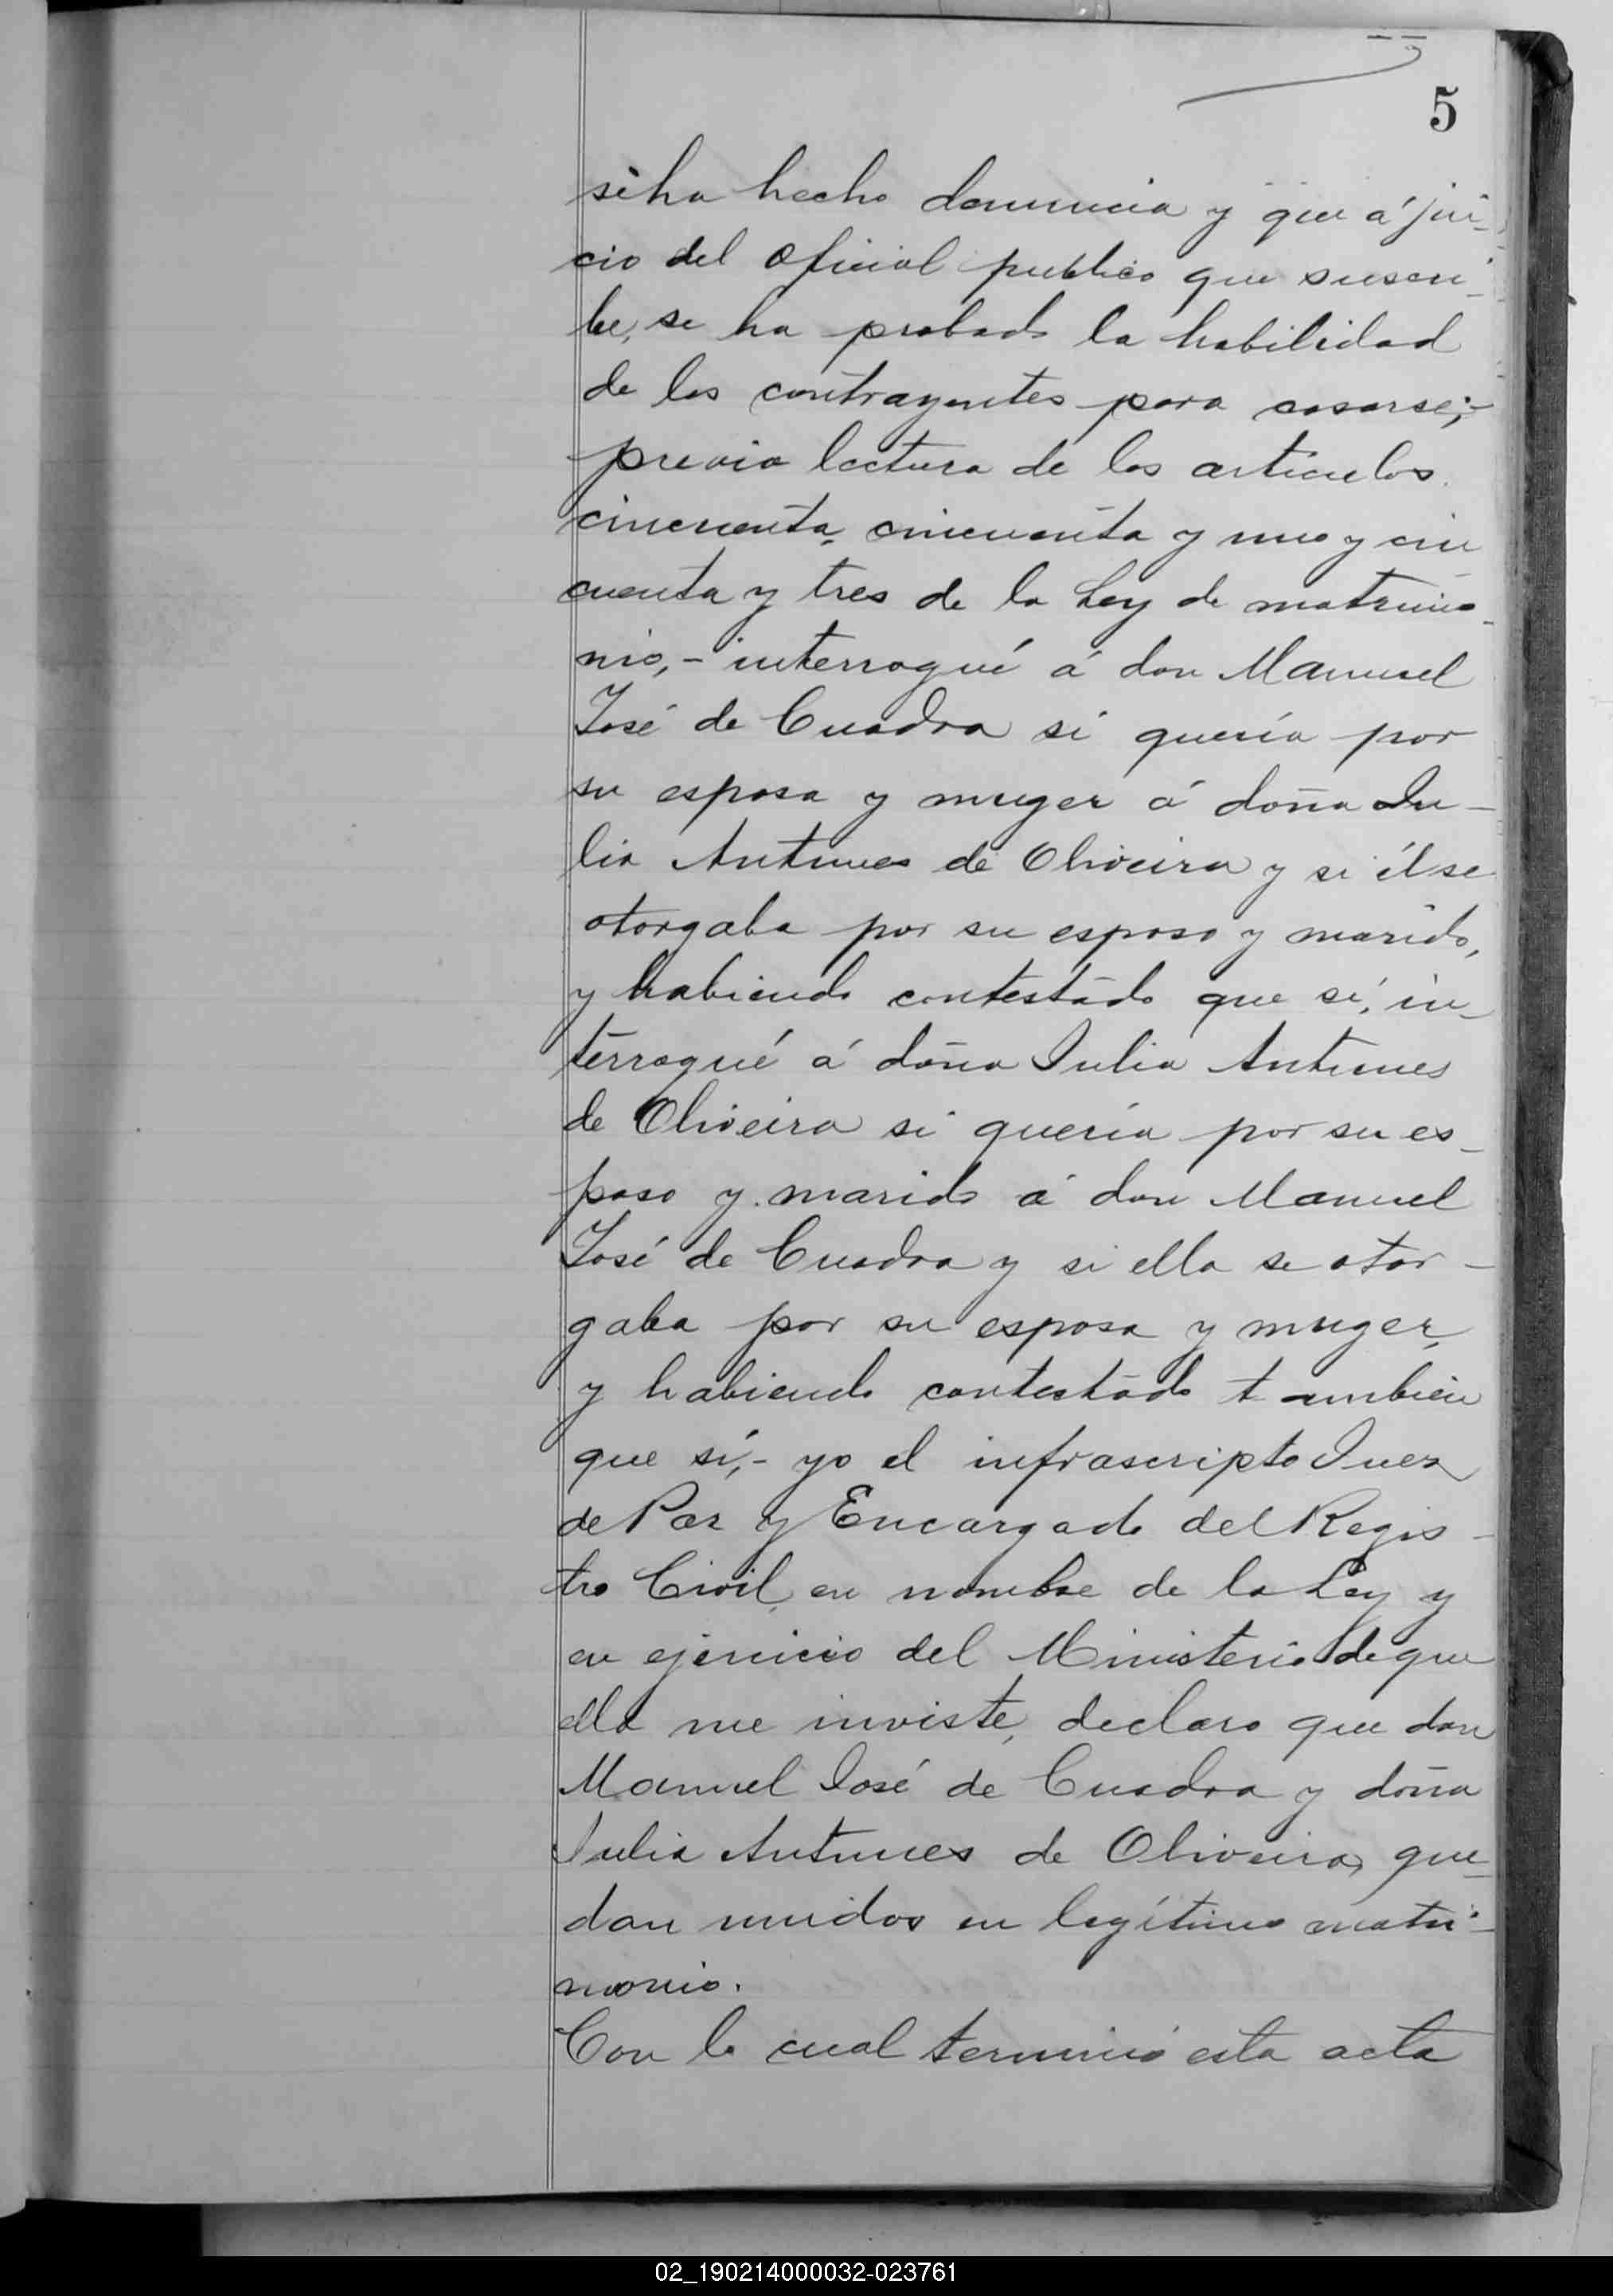 5
se ha hecho denuncia y que á jui-
cio del oficial publico que suscri-
be, se ha probado la habilidad
de los contrayentes para casarse;-
previa lectura de los articulos
cincuenta, cincuenta y uno y cin
cuenta y tres de la Ley de matrimo-
nio,- interrogué á don Manuel
José de Cuadra si quería por
su esposa y muger á doña Ju-
lia Antunes de Oliveira y si él se
otorgaba por su esposo y marido,
y habiendo contestado que sí, in-
terrogué á doña Julia Antunes
de Oliveira si quería por su es-
poso y marido á don Manuel
José de Cuadra y si ella se otor-
gaba por su esposa y muger,
y habiendo contestado tambien
que sí,- yo el infrascripto Juez
de Paz y Encargado del Regis-
tro Civil, en nombre de la Ley y
en ejercicio del Ministerio de que
ella me inviste, declaro que don
Manuel José de Cuadra y doña
Julia Antunes de Oliveira, que-
dan unidos en legítimo matri-
monio.
Con lo cual terminó esta acta
02_190214000032-023761